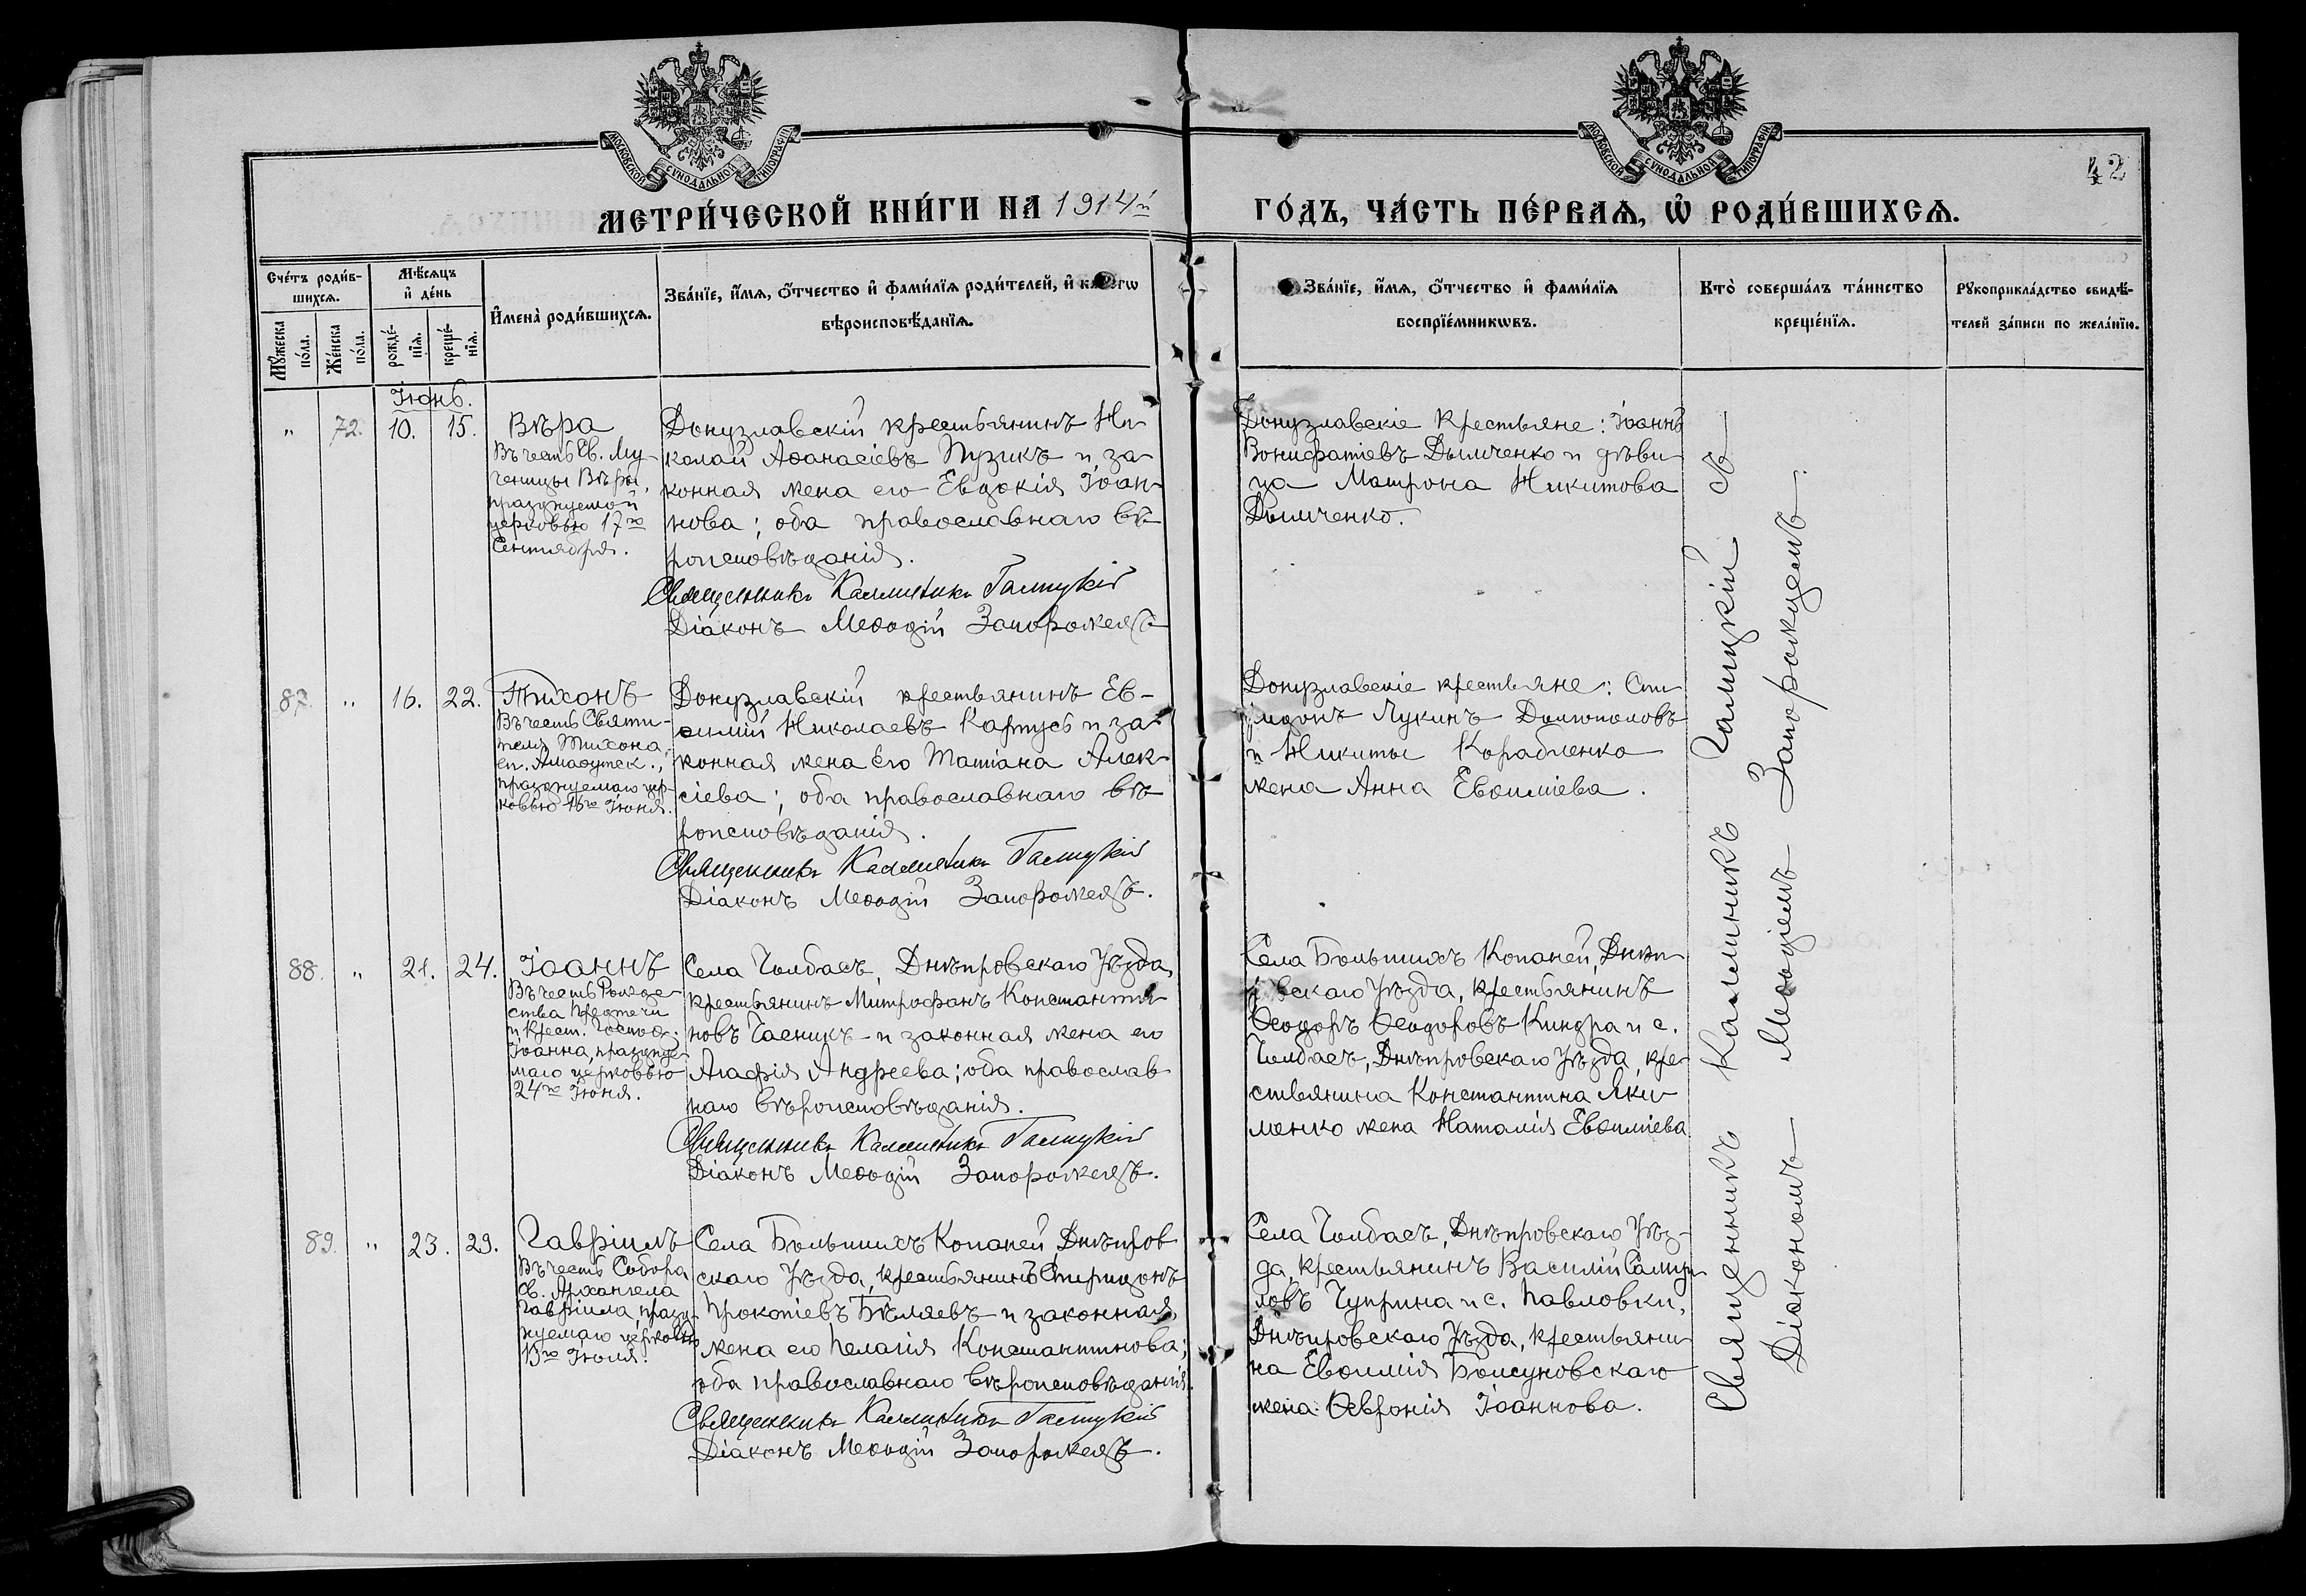 МОСКОВСКОЙ СѴНОДАЛЬНОЙ ТИПОГРАФІИ
МОСКОВСКОЙ СѴНОДАЛЬНОЙ ТИПОГРАФІИ
42
МЕТРИ́ЧЕСКОЙ КНИ́ГИ НА 1914й
ГО́ДЪ, ЧА́СТЬ ПЕ́РВАѦ, Ѽ РОДИ́ВШИХСѦ.
Сче́тъ роди́в-
шихсѧ.
Мꙋ́жеска по́ла.
Же́нска по́ла.
Мѣ́сѧцъ
и҆ де́нь
рожде́-
нїѧ.
креще́-
нїѧ.
И҆мена̀ роди́вшихсѧ.
Зва́нїе, и҆́мѧ, ѻ҆́тчество и҆ фами́лїѧ роди́телей, и҆ како́гѡ
вѣроисповѣ́данїѧ.
Зва́нїе, и҆́мѧ, ѻ҆́тчество и҆ фами́лїѧ
воспрїе́мникѡвъ.
Кто̀ соверша́лъ та́инство
креще́нїѧ.
Рꙋкоприкла́дство свидѣ́-
телей за́писи по жела́нїю.
Іюнь.
" 72. 10. 15.
Вѣра
Въ честь Св. Му-
ченицы Вѣры,
празднуемой
церковью 17го
Сентября.
Донузлавскій крестьянинъ Ни-
колай Аѳанасіевъ Пузикъ и за-
конная жена его Евдокія Іоан-
нова; оба православнаго вѣ-
роисповѣданія.
Священникъ Каллиникъ Галицкій
Діаконъ Меѳодій Запорожецъ
Донузлавскіе крестьяне: Іоаннъ
Вонифатіевъ Дымченко и дѣви-
ца Матрона Никитова
Дымченко.
87. " 16. 22.
Тихонъ
Въ честь Святи-
теля Тихона,
еп. Амаѳунтск.,
празднуемаго цер-
ковью 16го Іюня.
Донузлавскій крестьянинъ Ев-
ѳимій Николаевъ Картусъ и за-
конная жена его Татіана Алек-
сіева; оба православнаго вѣ-
роисповѣданія.
Священникъ Каллиникъ Галицкій
Діаконъ Меѳодій Запорожецъ.
Донузлавскіе крестьяне: Спи-
ридонъ Лукинъ Долгополовъ
и Никиты Корабленко
жена Анна Евѳиміева.
88. " 21. 24.
Іоаннъ
Въ честь Рожде-
ства Предтечи
и Крест. Господ.
Іоанна, праздуе-
маго церковью
24го Іюня.
Села Чолбасъ, Днѣпровскаго Уѣзда,
крестьянинъ Митрофанъ Константи-
новъ Часникъ и законная жена его
Агафія Андреева; оба православ-
наго вѣроисповѣданія.
Священникъ Каллиникъ Галицкій
Діаконъ Меѳодій Запорожецъ.
Села Большихъ Копаней, Днѣп-
ровскаго Уѣзда, крестьянинъ
Ѳеодоръ Ѳеодоровъ Киндра и с.
Чолбасъ, Днѣпровскаго Уѣзда, кре-
стьянина Константина Яки-
менко жена Наталія Евѳиміева
89. " 23. 29.
Гавріилъ
Въ честь Собора
Св. Архангела
Гавріила, празд-
нуемаго церковью
13го Іюля.
Села Большихъ Копаней, Днѣпров-
скаго Уѣзда, крестьянинъ Спиридонъ
Прокопіевъ Бѣляевъ и законная
жена его Пелагія Константинова;
оба православнаго вѣроисповѣданія.
Священникъ Каллиникъ Галицкій
Діаконъ Меѳодій Запорожецъ.
Села Чолбасъ, Днѣпровскаго Уѣз-
да, крестьянинъ Василій Самуи-
ловъ Чуприна и с. Павловки,
Днѣпровскаго Уѣзда, крестьяни-
на Евѳимія Борсуновскаго
жена Ѳевронія Іоаннова.
Священникъ Каллиникъ Галицкій съ
Діакономъ Меѳодіемъ Запорожцемъ.